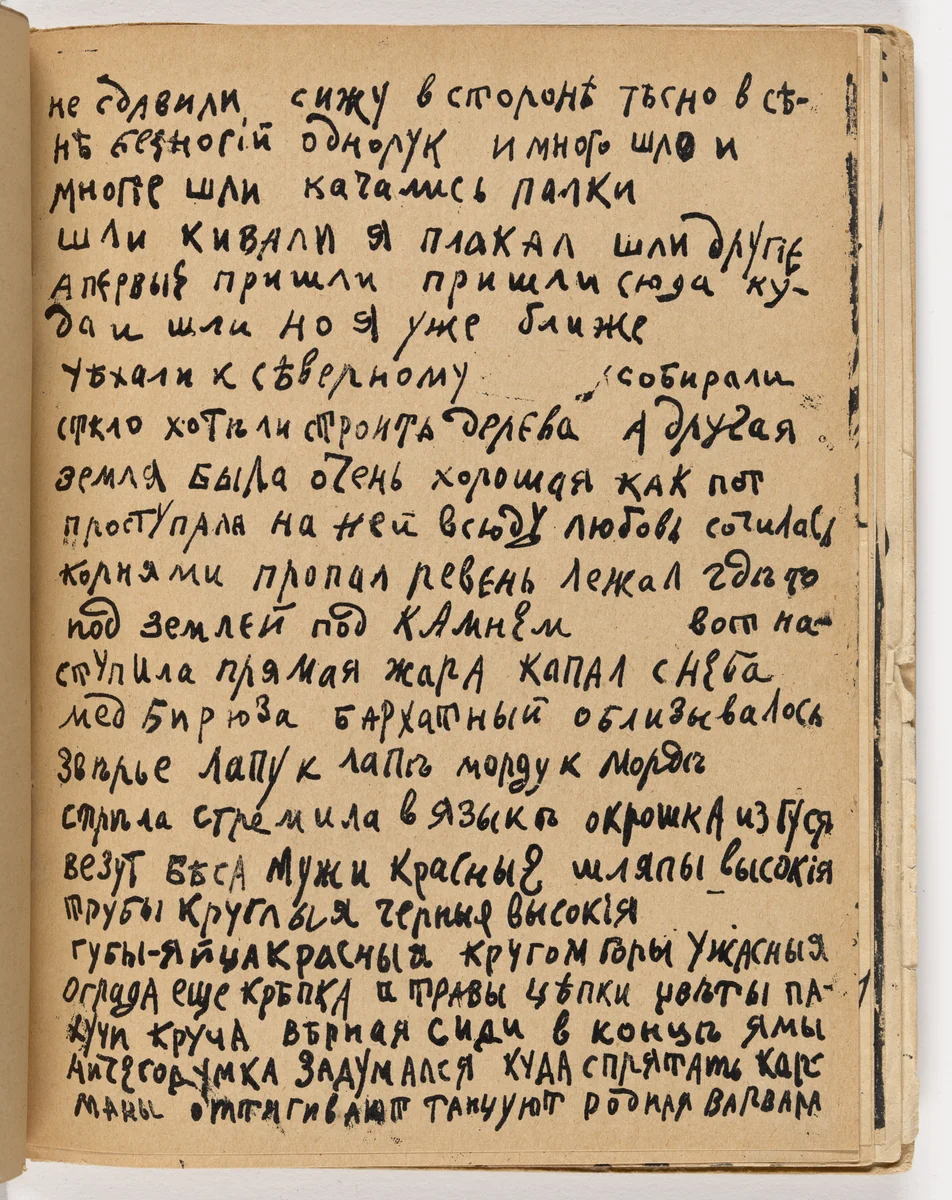 не сдавили, сижу в сторонѣ тѣсно в сѣ-
нѣ безногій однорук и много шло и
многіе шли качались палки
шли кивали я плакал шли другіе
а первые пришли пришли сюда ку-
да и шли но я уже ближе
уѣхали к сѣверному собирали
сткло хотѣли строить дерева а другая
земля была очень хорошая как пот
проступала на ней всюду любовь сочилась
корнями пропал ревень лежал гдѣ то
под землей под камнем вот на-
ступила прямая жара капал с неба
мед бирюза бархатный облизывалось
звѣрье лапу к лапѣ морду к мордѣ
стрѣла стремила в языкѣ окрошка из гуся
везут бѣса мужи красные шляпы высокія
трубы круглыя черные высокія
губы-яйца красный кругом горы ужасныя
ограда еще крѣпка и травы цѣпки цвѣты па-
хучи круча вѣрная сиди в концѣ ямы
задумался куда спрятать кар-
маны оттягивают танцуют родная варвара